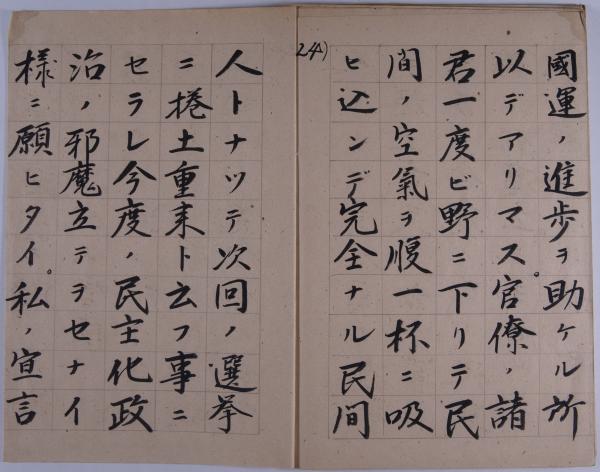 24)
國運ノ進歩ヲ助ケル所
以デアリマス。官僚ノ諸
君一度ビ野ニ下リテ民
間ノ空氣ヲ腹一杯ニ吸
ヒ込ンデ完全ナル民間
人トナツテ次回ノ選挙
ニ捲土重来ト云フ事ニ
セラレ今度ノ民主化政
治ノ邪魔立テヲセナイ
様ニ願ヒタイ。私ノ宣言